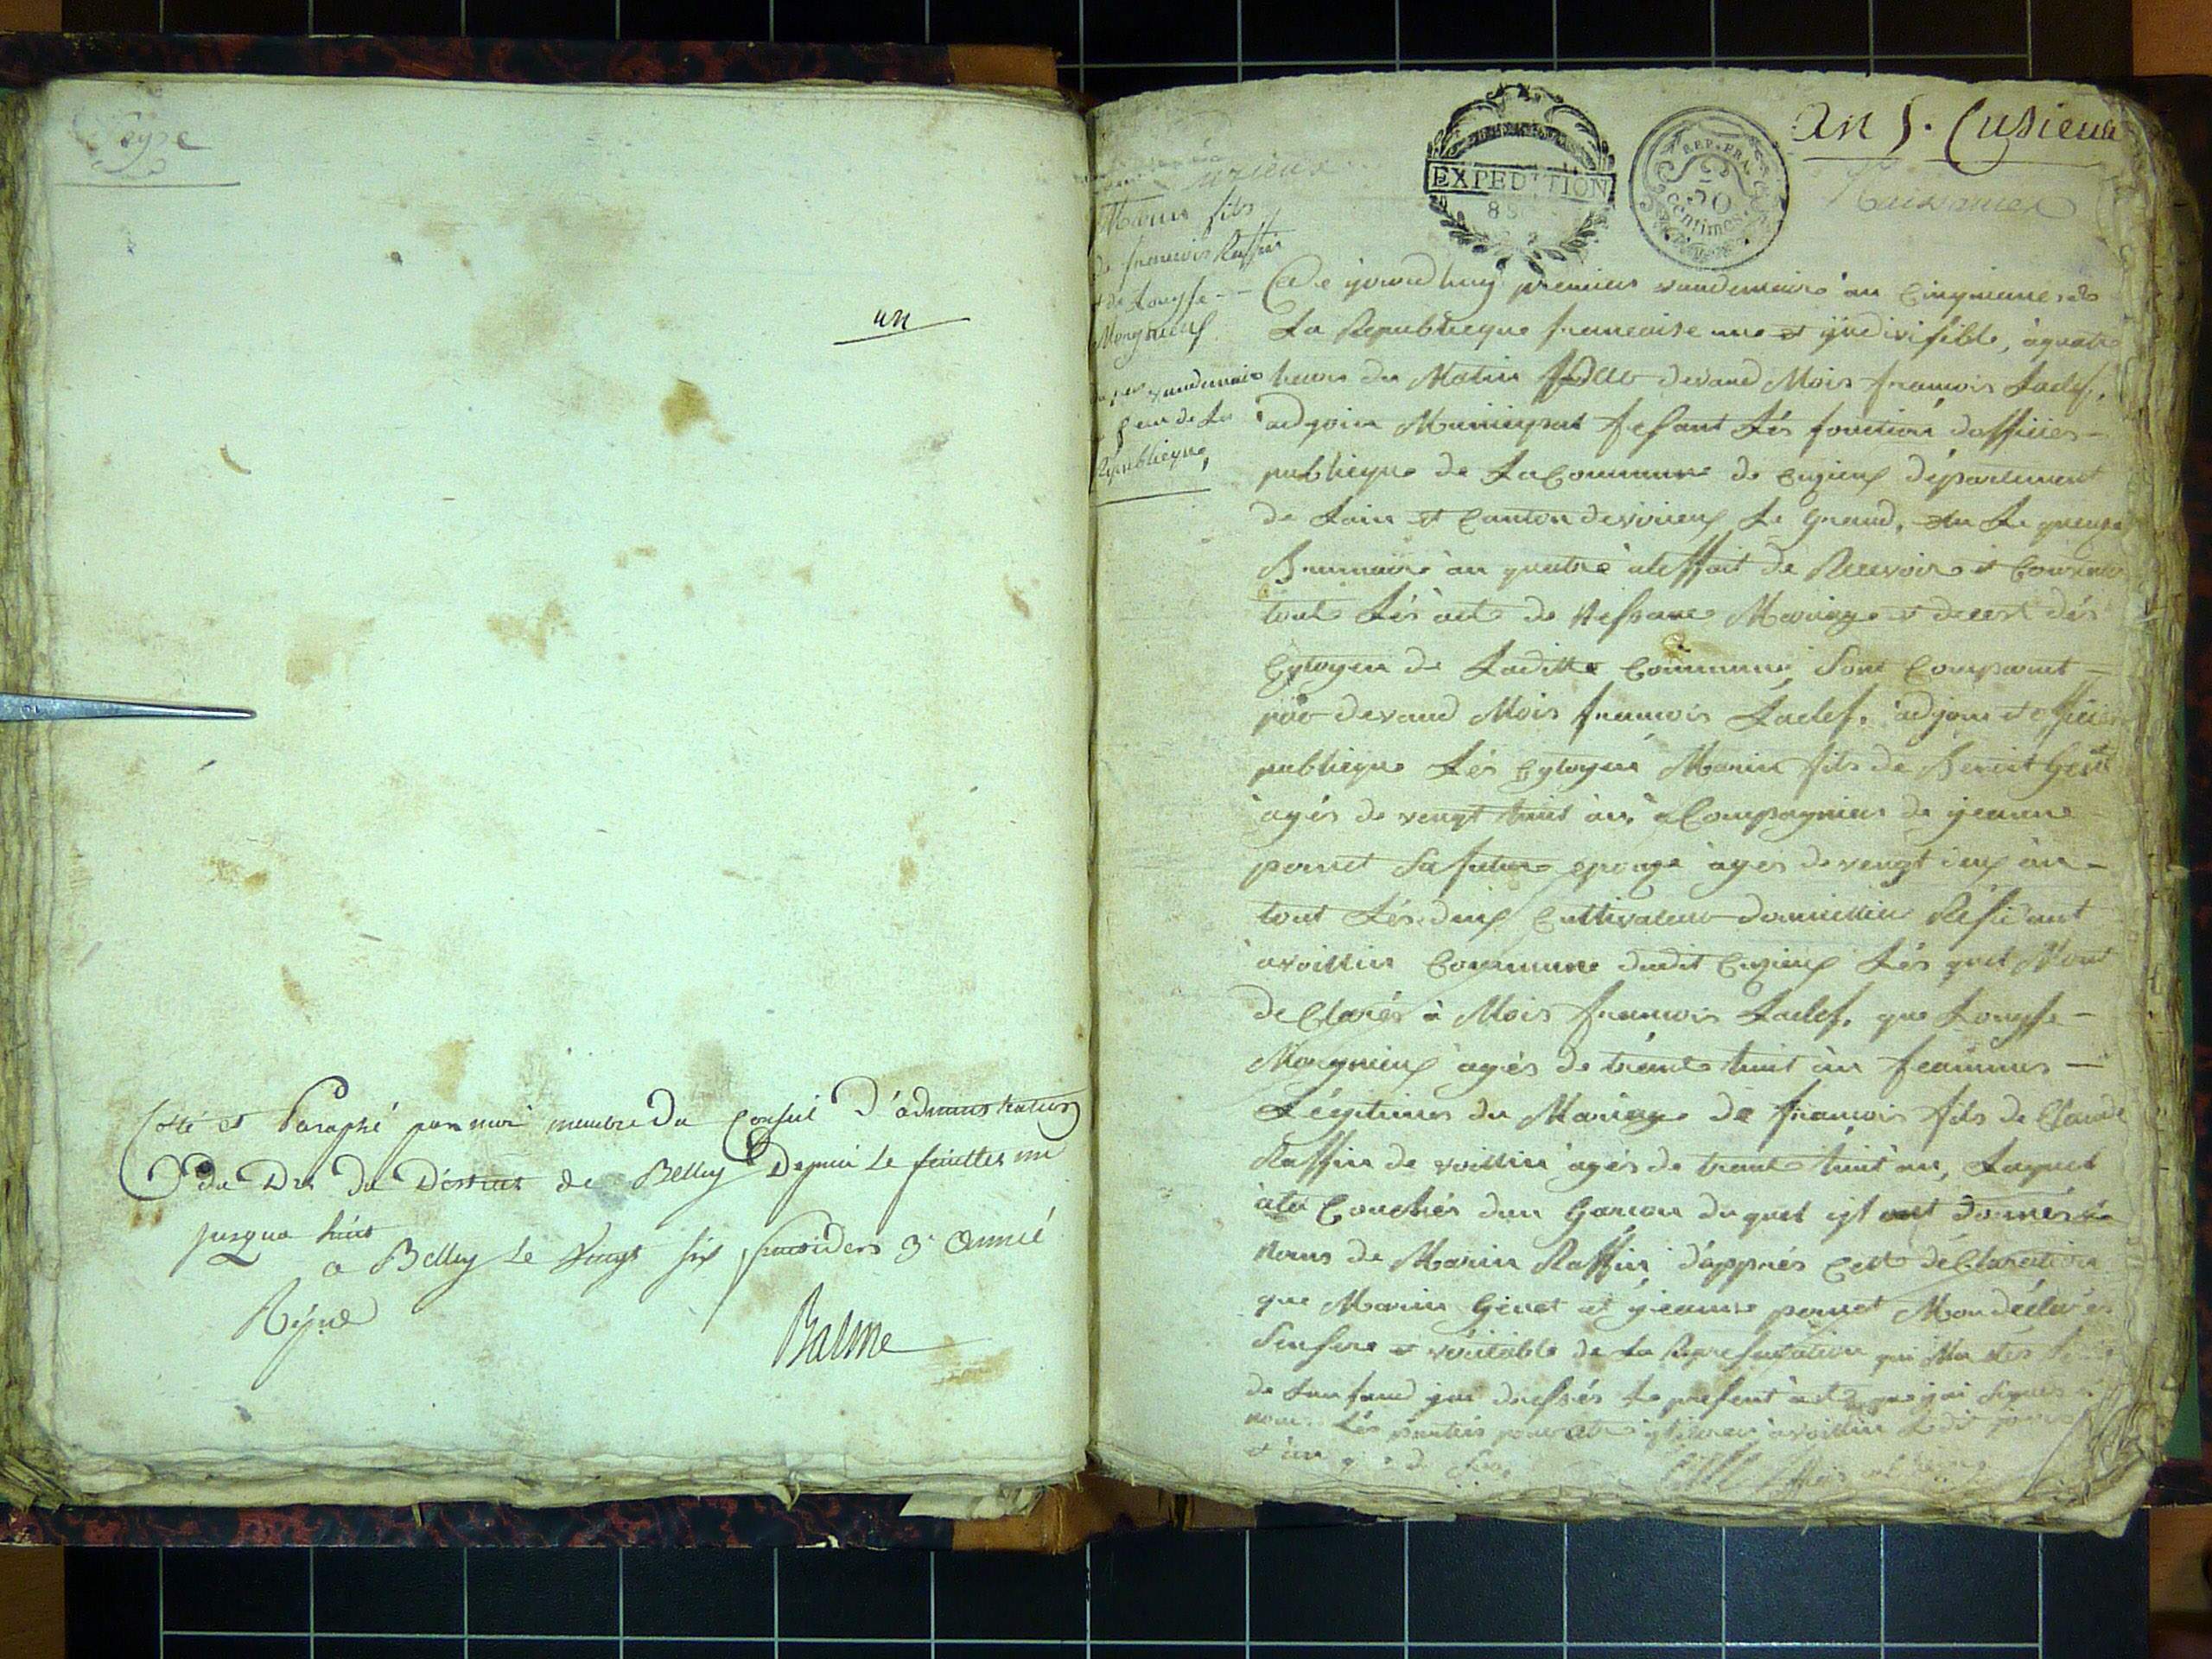 un
Cotté et Paraphé par moi membre du Conseil d'administration
du Dre du District de Belley Depuis le feuillet un
jusqua huit
a Belley le Vingt six fructidors 3e année
Balme
an 5. Cusieux
Naissances
EXPEDITION
REP. FRA.
50
centimes
Marin fils
de francois Raffin
et de Louyse
Morgnieux
du 1er vandemaire
5 an de La
Republieque,
Ce jourd'huy premier vandemaire an Cinquieme de
La Republieque francaise une et yndivisible, à quatre
heure du Matin par devand Mois francois Laclef,
adjoin Municipal fesant Lés fonction dofficier
publieque de La Commune de Cuzieux département
de Lain et Canton de virieux Le grand, élu Le quenze
Brumaire an quatre à leffait de Recevoir et Conserver
tout Lés acte de Nessance Mariage et decest dés
Cytoyen de Laditte Commune, Sont Comparut
par devand Mois francois Laclef, adjoin et officier
publieque Lés Cytoyens Marin fils de Benoit Genet
agés de vengt huit an, a Compagnier de yeanne
pernet Sa future epouze agés de vengt deux an
tout Lés deux Cultivateur domicillier Résidant
à voillin Commune dudit Cuzieux Lés quel Mont
de Clarés à Mois francois Laclef, que Louyse
Morgnieux agés de trante huit an feammes
Légitimes du Mariage de francois fils de Claude
Raffin de voillin agés de trante huit an, Laquel
àla Couchés dun Garcon du quel yl ont donnés le
nom de Marin Raffin, d'apprés Cett de Claration
que Marin Genet et yeanne pernet Mon déclarés
Sinsere et véritable de La Representation qui Ma étés
de Lanfand jai dressés Le present acte que jai Signés